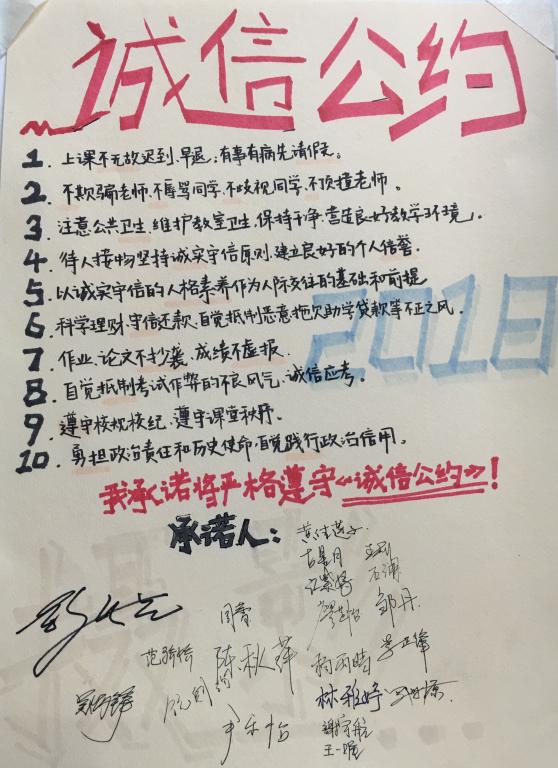 诚信公约
1. 上课不无故迟到、早退;有事有病先请假。
2. 不欺骗老师、不辱骂同学、不歧视同学、不顶撞老师。
3. 注意公共卫生、维护教室卫生、保持干净、营造良好教学环境。
4. 待人接物坚持诚实守信原则、建立良好的个人信誉。
5. 以诚实守信的人格素养作为人际交往的基础和前提
6. 科学理财、守信还款、自觉抵制恶意拖欠助学贷款等不正之风。
7. 作业、论文不抄袭、成绩不虚报.
8. 自觉抵制考试作弊的不良风气、诚信应考。
9. 遵守校规校纪、遵守课堂秩序。
10. 勇担政治责任和历史使命、自觉践行政治信用。
2018
我承诺将严格遵守《诚信公约》!
承诺人:
邹丹
陈秋萍
林雅婷